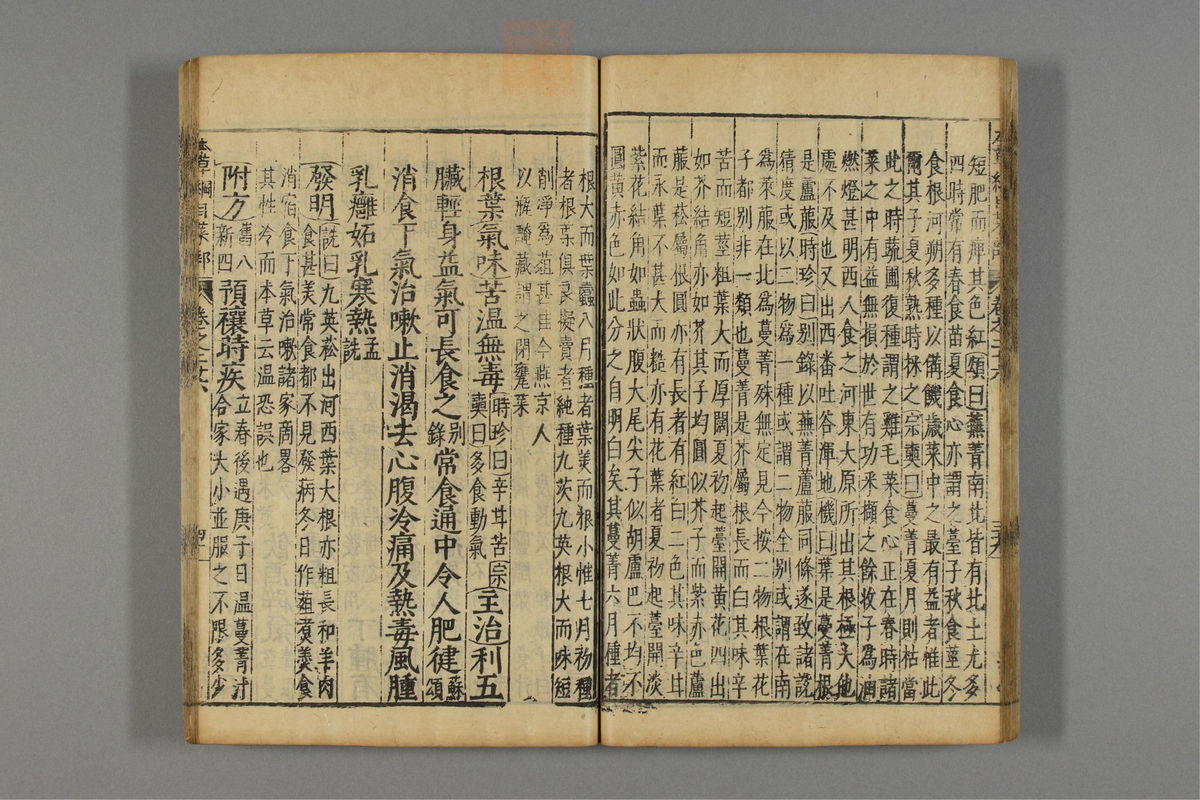 短肥而痺其色紅頌曰蕪菁南北皆有北土尤多
四時常有春食苗夏食心亦謂之薹子秋食莖冬
食根河朔多種以備饑歲菜中之最有益者惟此
爾其子夏秋熟時採之宗奭曰蔓菁夏月則枯當
此之時蔬圃復種謂之雞毛菜食心正在春時諸
菜之中有益無損於世有功采擷之餘收子為油
燃燈甚明西人食之河東太原所出其根極大他
處不及也又出西番吐谷渾地機曰葉是蔓菁根
是蘆菔時珍曰別錄以蕪菁蘆菔同條遂致諸說
猜度或以二物為一種或謂二物全別或謂在南
為萊菔在北為蔓菁殊無定見今按二物根葉花
子都別非一類也蔓菁是芥屬根長而白其味辛
苦而短莖粗葉大而厚闊夏初起薹開黃花四出
如芥結角亦如芥其子均圓似芥子而紫赤色蘆
菔是菘屬根圓亦有長者有紅白二色其味辛甘
而永葉不甚大而糙亦有花葉者夏初起薹開淡
紫花結角如蟲狀腹大尾尖子似胡盧巴不均不
圓黃赤色如此分之自明白矣其蔓菁六月種者
根大而葉蠹八月種者葉美而根小惟七月初種
者根葉俱良擬賣者純種九英九英根大而味短
削淨為菹甚佳今燕京人
以瓶醃藏謂之閉甕菜
根葉氣味苦溫無毒時珍曰辛甘苦宗
奭曰多食動氣主治利五
臟輕身益氣可長食之別
錄常食通中令人肥健蘇
頌
消食下氣治嗽止消渴去心腹冷痛及熱毒風腫
乳癰妬乳寒熱孟
詵
發明詵曰九英菘出河西葉大根亦粗長和羊肉
食甚美常食都不見發病冬日作菹煮羹食
消宿食下氣治嗽諸家商畧
其性冷而本草云溫恐誤也
附方舊八
新四預禳時疾立春後遇庚子日溫蔓菁汁
合家大小並服之不限多少
本草綱目菜部 卷之二十六